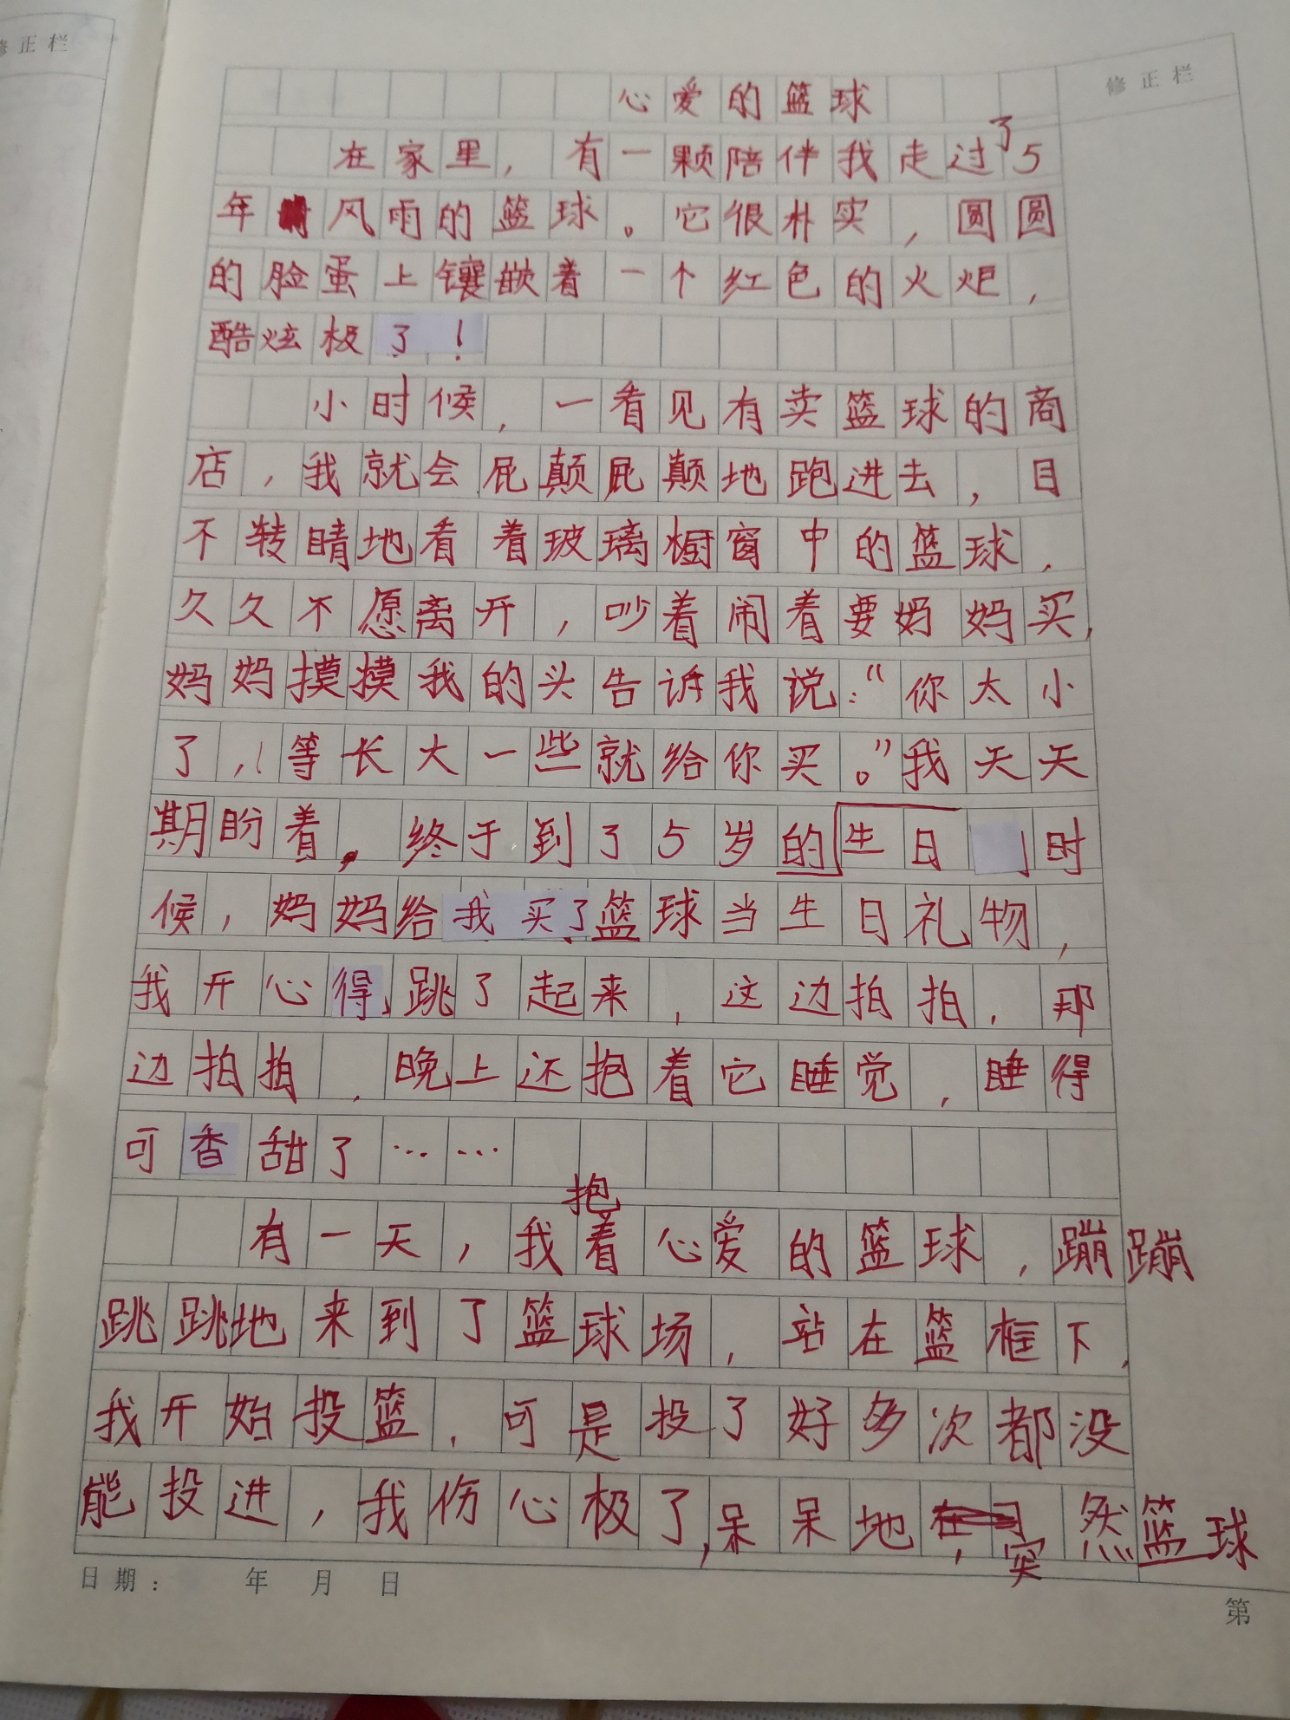 修正栏
修正栏
心爱的篮球
在家里，有一颗陪伴我走过了5
年风雨的篮球。它很朴实，圆圆
的脸蛋上镶嵌着一个红色的火炬，
酷炫极了！
小时候，一看见有卖篮球的商
店，我就会屁颠屁颠地跑进去，目
不转睛地看着玻璃橱窗中的篮球，
久久不愿离开，吵着闹着要妈妈买，
妈妈摸摸我的头告诉我说：“你太小
了，等长大一些就给你买。”我天天
期盼着，终于到了5岁的生日时
候，妈妈给我买了篮球当生日礼物，
我开心得跳了起来，这边拍拍，那
边拍拍，晚上还抱着它睡觉，睡得
可香甜了……
有一天，我抱着心爱的篮球，蹦蹦
跳跳地来到了篮球场，站在篮框下，
我开始投篮，可是投了好多次都没
能投进，我伤心极了，呆呆地，突然篮球
日期： 年 月 日
第